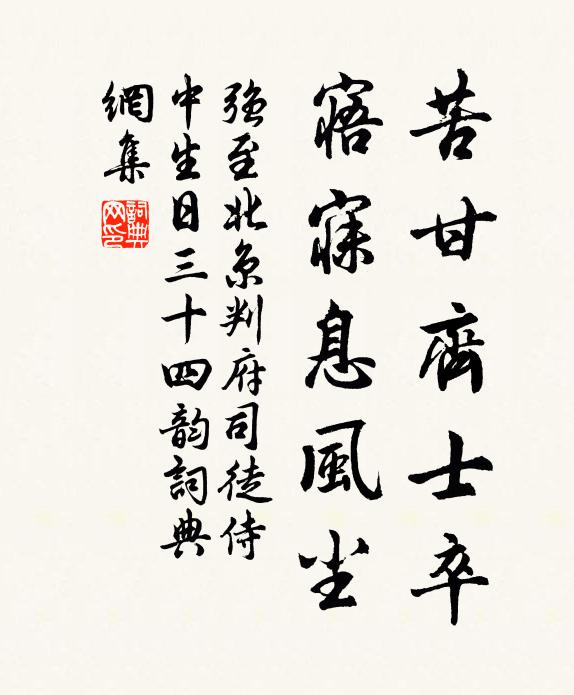 苦甘齊士卒
寤寐息風尘
強至北京判府司徒侍
中生日三十四韵詞典
網集
詞典网印